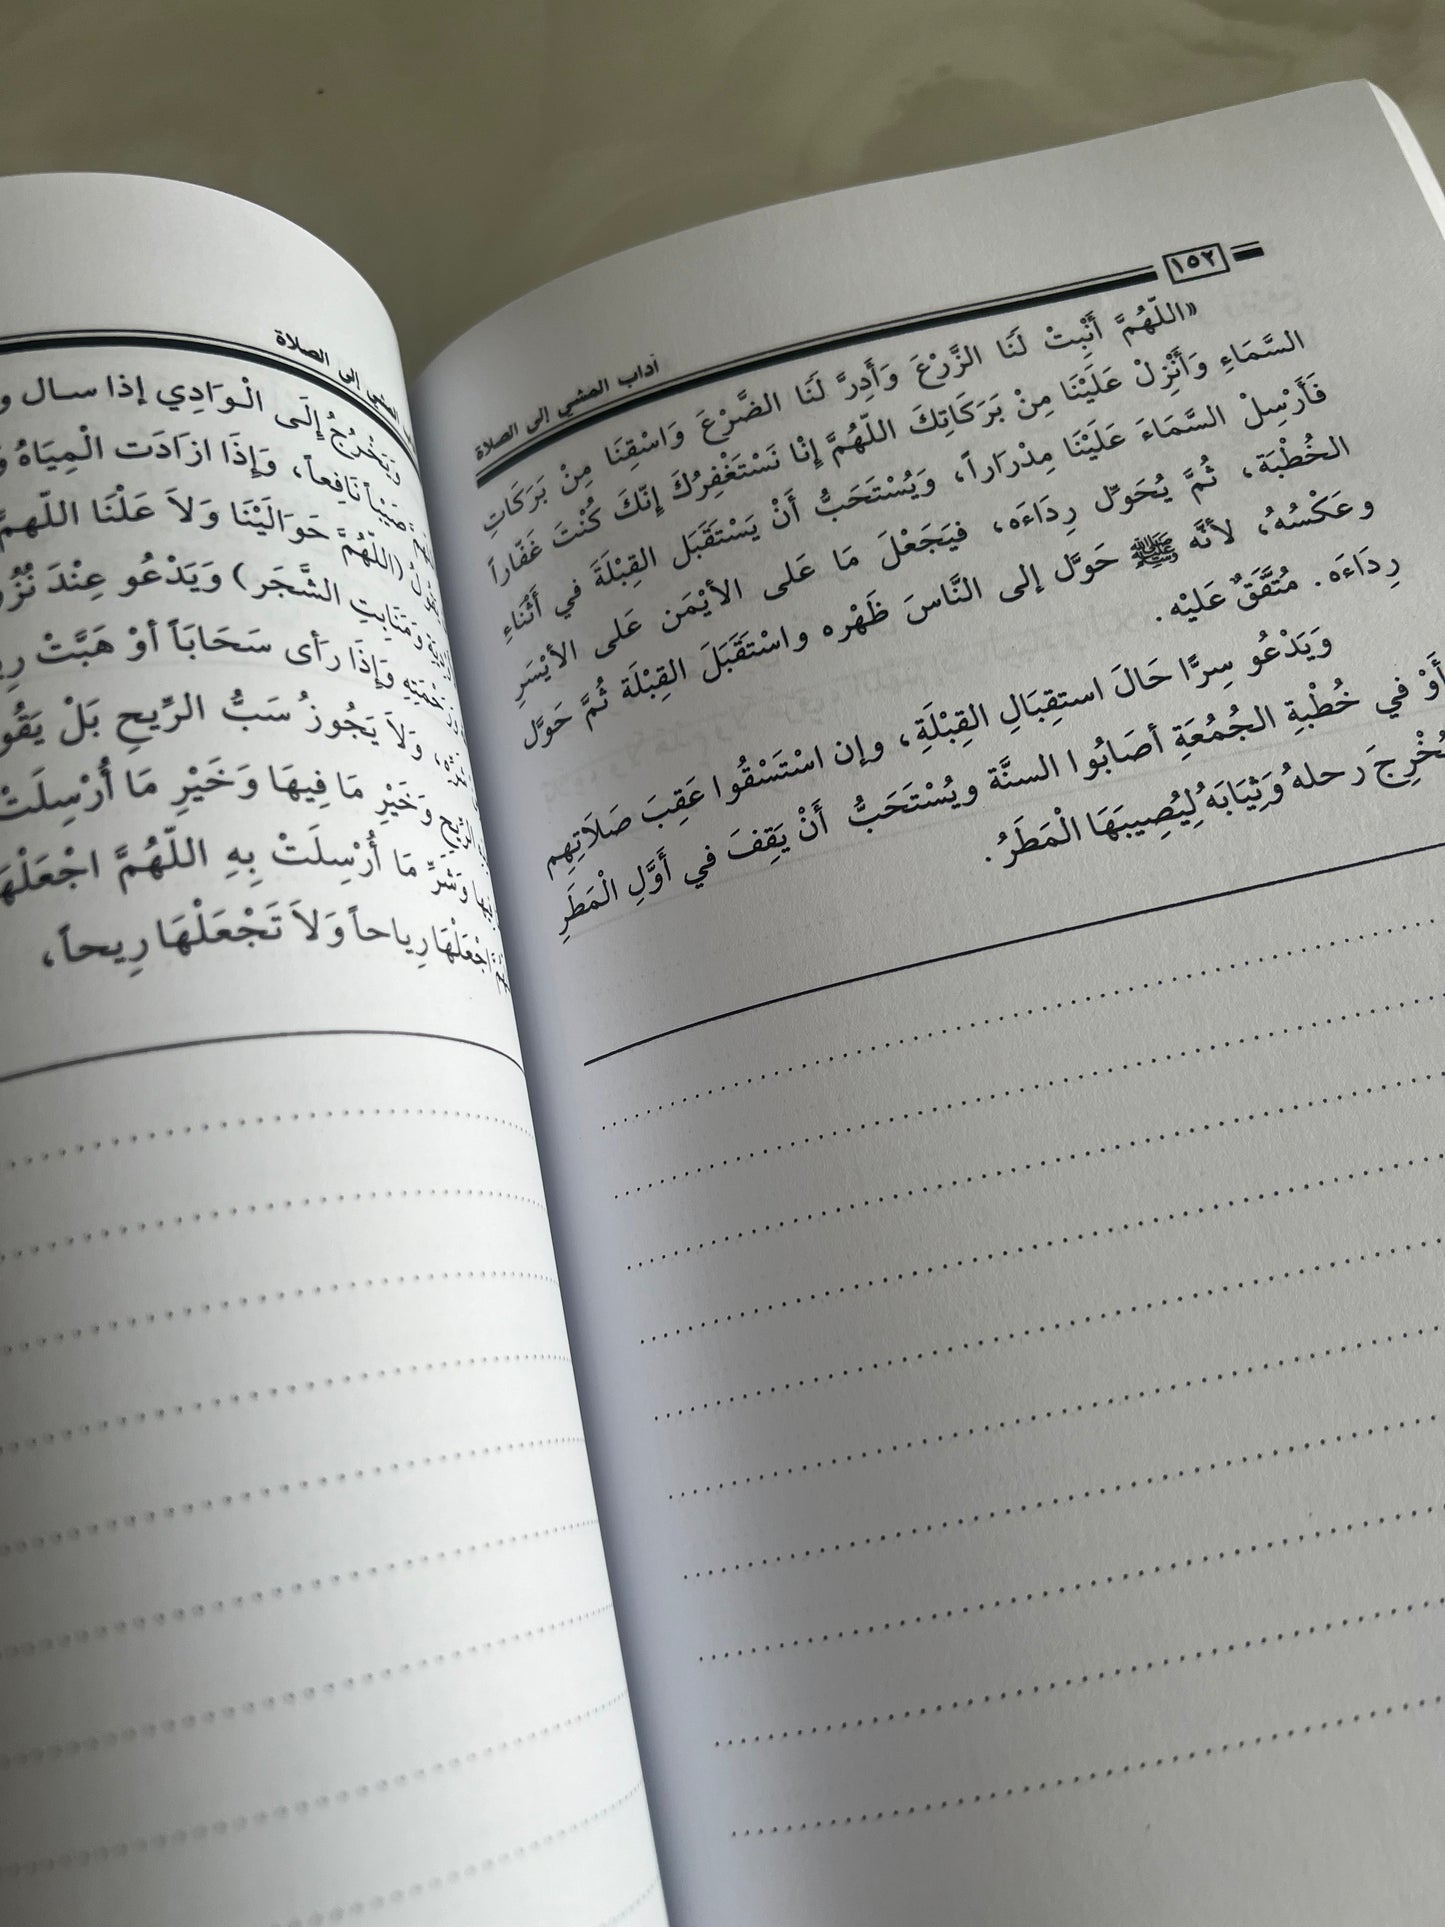 ١٥٢
آداب المشي إلى الصلاة
«اللّهُمَّ أَنْبِتْ لَنَا الزَّرْعَ وَأَدِرَّ لَنَا الضَّرْعَ وَاسْقِنَا مِنْ بَرَكَاتِ
السَّمَاءِ وَأَنْزِلْ عَلَيْنَا مِنْ بَرَكَاتِكَ اللّهُمَّ إِنّا نَسْتَغْفِرُكَ إِنّكَ كُنْتَ غَفّاراً
فَأَرْسِلْ السَّمَاءَ عَلَيْنَا مِدْرَاراً، وَيُسْتَحَبُّ أَنْ يَسْتَقْبَل القِبْلَةَ في أَثْنَاءِ
الخُطْبَة، ثُمَّ يُحَوّل رِدَاءَه، فيَجَعْلَ مَا عَلى الأيْمَن عَلى الأيْسَرِ
وعَكْسُهُ، لأنَّه ﷺ حَوَّل إلى النَّاسَ ظَهْره واسْتَقَبَلَ القِبْلَة ثُمَّ حَوَّل
رِدَاءَه. مُتَّفَقٌ عَليْه.
وَيَدْعُو سِرًّا حَالَ استقِبَالِ القِبْلَةِ، وإن اسْتَسْقُوا عَقِبَ صَلَاتِهِم
أَوْ في خُطْبةِ الجُمُعَةِ أصَابُوا السنَّة ويُسْتَحَبُّ أَنْ يَقِفَ في أَوَّلِ الْمَطَرِ
رَحلهُ وَثِيَابَهُ لِيُصِيبَهَا الْمَطَرُ.
المشي إلى الصلاة
وَيَخْرُجُ إِلَى الْوَادِي إذا سال
صَيْباً نَافِعاً، وَإِذَا ازادَت الْمِيَاهُ
(اللّهُمَّ حَوَالَيْنَا وَلاَ عَلْنَا اللّهمَّ
وَمَنَابِتِ الشَّجَر) وَيَدْعُو عِنْدَ
وَإِذَا رَأى سَحَابَاً أوْ هَبَّتْ
وَلاَ يَجُوزُ سَبُّ الرِّيحِ بَلْ
وَخَيْرِ مَا فِيهَا وَخَيْرِ مَا أُرْسِلَتْ
وَشَرِّ مَا أُرْسِلَتْ بِهِ اللّهُمَّ
اجْعَلْهَا رِياحاً وَلاَ تَجْعَلْهَا رِيحاً،